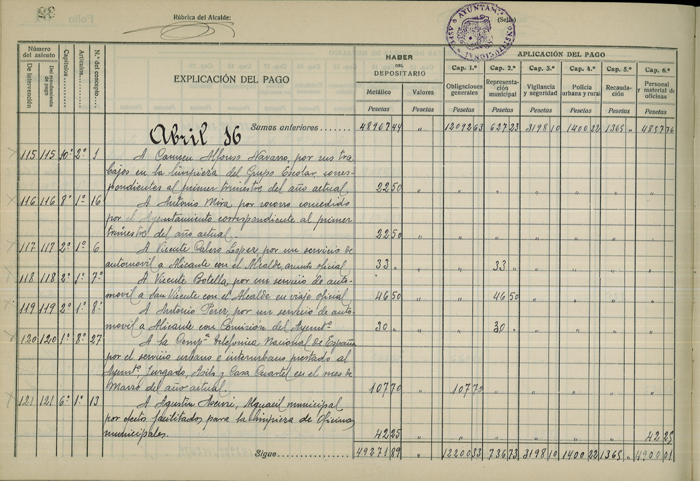 Folio
Rúbrica del Alcalde:
(Sello)
AYUNTAM
Número del asiento
De Intervención
Del mandamiento de pago
Capítulos
Artículos
N.º del concepto
EXPLICACIÓN DEL PAGO
HABER DEL DEPOSITARIO
Metálico Valores
Pesetas Pesetas
APLICACIÓN DEL PAGO
Cap. 1.º Cap. 2.º Cap. 3.º Cap. 4.º Cap. 5.º Cap. 6.º
Obligaciones generales Representación municipal Vigilancia y seguridad Policía urbana y rural Recaudación Personal y material de oficinas
Pesetas Pesetas Pesetas Pesetas Pesetas Pesetas
Abril 16 Sumas anteriores 48967 44 " 12092 63 627 23 3198 10 1400 22 1365 " 4857 76
115 115 10º 2º 1 A Carmen Alfonso Navarro, por sus tra-
bajos en la limpieza del Grupo Escolar corres-
pondientes al primer trimestre del año actual. 22 50
116 116 8º 1º 16 A Antonio Mira, por socorro concedido
por el Ayuntamiento correspondiente al primer
trimestre del año actual. 22 50
117 117 2º 1º 6 A Vicente Calero López, por un servicio de
automovil a Alicante con el Alcalde, asunto oficial 33 " 33 "
118 118 2º 1º 7º A Vicente Botella, por un servicio de auto-
movil a San Vicente con el Alcalde en viaje oficial 46 50 46 50
119 119 2º 1º 8º A Antonio Perez, por un servicio de auto-
movil a Alicante con Comisión del Ayuntº 30 " 30 "
120 120 1º 8º 27 A la Compª Telefónica Nacional de España
por el servicio urbano e interurbano prestado al
Ayuntº, Juzgado, Asilo y Casa Cuartel en el mes de
Marzo del año actual. 107 70 107 70
121 121 6º 1º 13 A Agustin, Alguacil municipal
por efectos facilitados para la limpieza de Oficinas
municipales. 42 25 42 25
Sigue 49271 89 " 12200 33 736 73 3198 10 1400 22 1365 " 4900 01